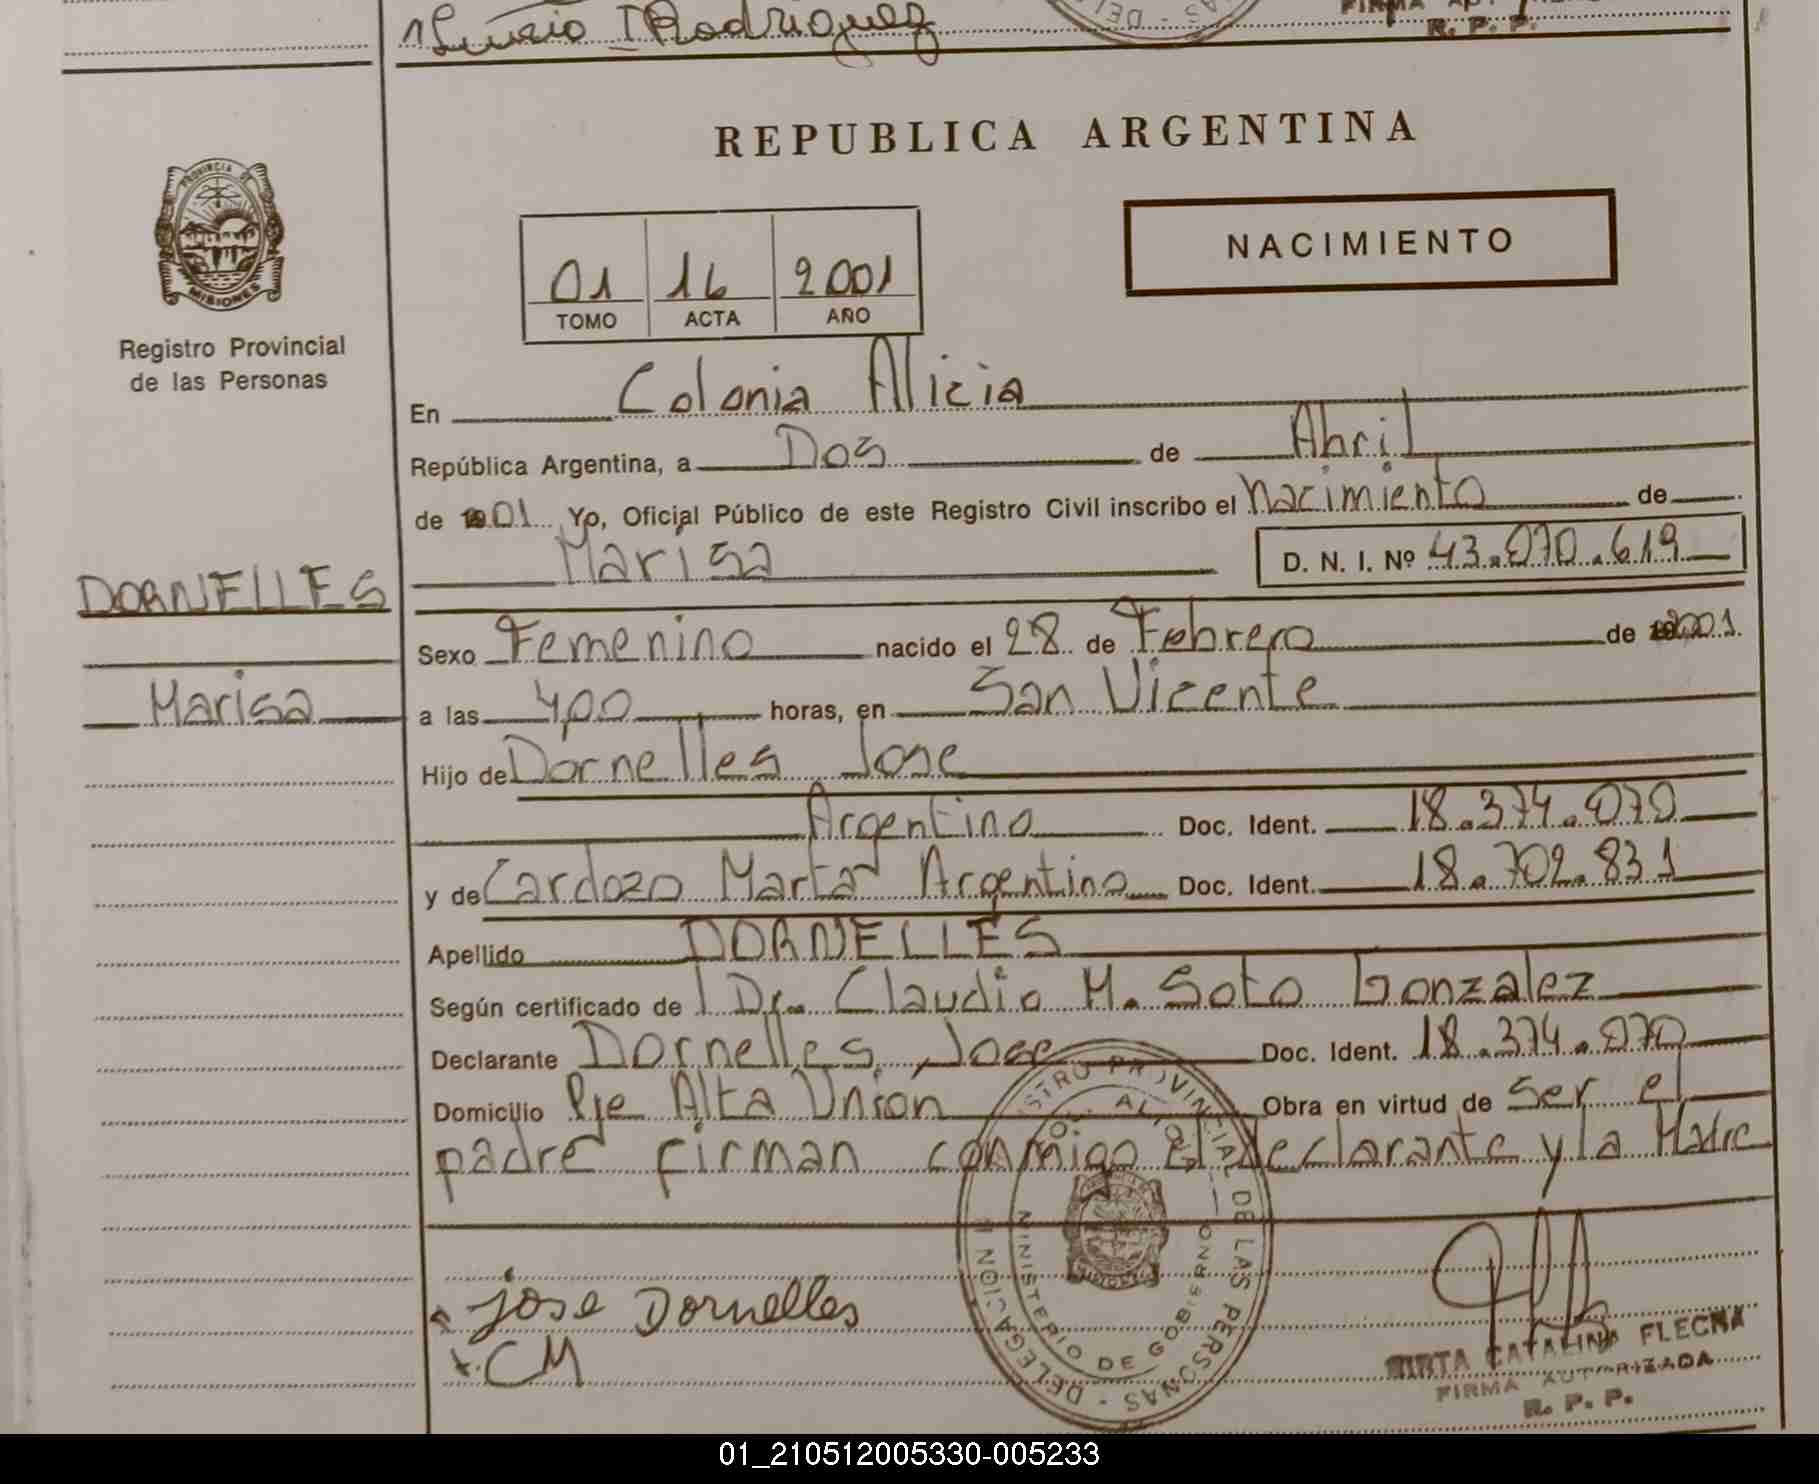 Rodriguez
R. P. P.
REPUBLICA ARGENTINA
NACIMIENTO
PROVINCIA DE
MISIONES
Registro Provincial
de las Personas
01 16 2001
TOMO ACTA AÑO
En Colonia Alicia
República Argentina, a Dos de Abril
de 2001 Yo, Oficial Público de este Registro Civil inscribo el Nacimiento de
Marisa D. N. I. Nº 43.070.619
DORNELLES
Marisa
Sexo Femenino nacido el 28 de Febrero de 2001
a las 4,00 horas, en San Vicente
Hijo de Dornelles Jose
Argentino Doc. Ident. 18.374.070
y de Cardozo Marta Argentina Doc. Ident. 18.702.831
Apellido DORNELLES
Según certificado de Dr. Claudio M. Soto Gonzalez
Declarante Dornelles, Jose Doc. Ident. 18.374.070
Domicilio Pje Alta Union Obra en virtud de ser el
padre firman conmigo el Declarante y la Madre
REGISTRO PROVINCIAL DE LAS PERSONAS - DELEGACION
MINISTERIO DE GOBIERNO
Jose Dornelles
CM
MIRTA CATALINA FLECHA
FIRMA AUTORIZADA
R. P. P.
01_210512005330-005233